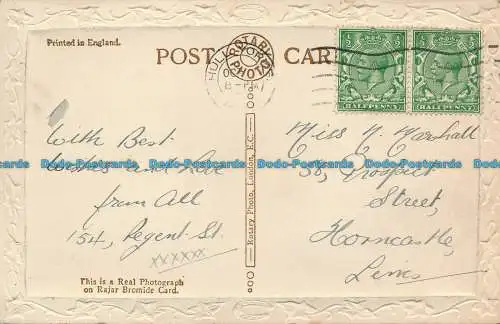 Printed in England.
POST CARD
ROTARY PHOTO
HULL
HALFPENNY
HALFPENNY
With Best
Wishes and Love
from All
154, Regent St.
xxxxxx
Miss N. Marshall
58, Prospect
Street,
Horncastle,
Lincs
Rotary Photo, London, E.C.
This is a Real Photograph
on Rajar Bromide Card.
Dodo-Postcards Dodo-Postcards Dodo-Postcards Dodo-Postcards